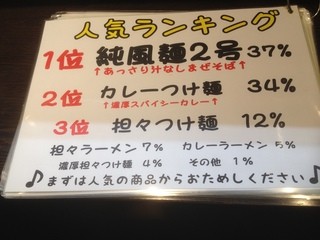 人気ランキング
1位 純風麺2号 37%
↑あっさり汁なしまぜそば↑
2位 カレーつけ麺 34%
↑濃厚スパイシーカレー↑
3位 担々つけ麺 12%
担々ラーメン 7% カレーラーメン 5%
濃厚担々つけ麺 4% その他 1%
♪まずは人気の商品からおためしください♪